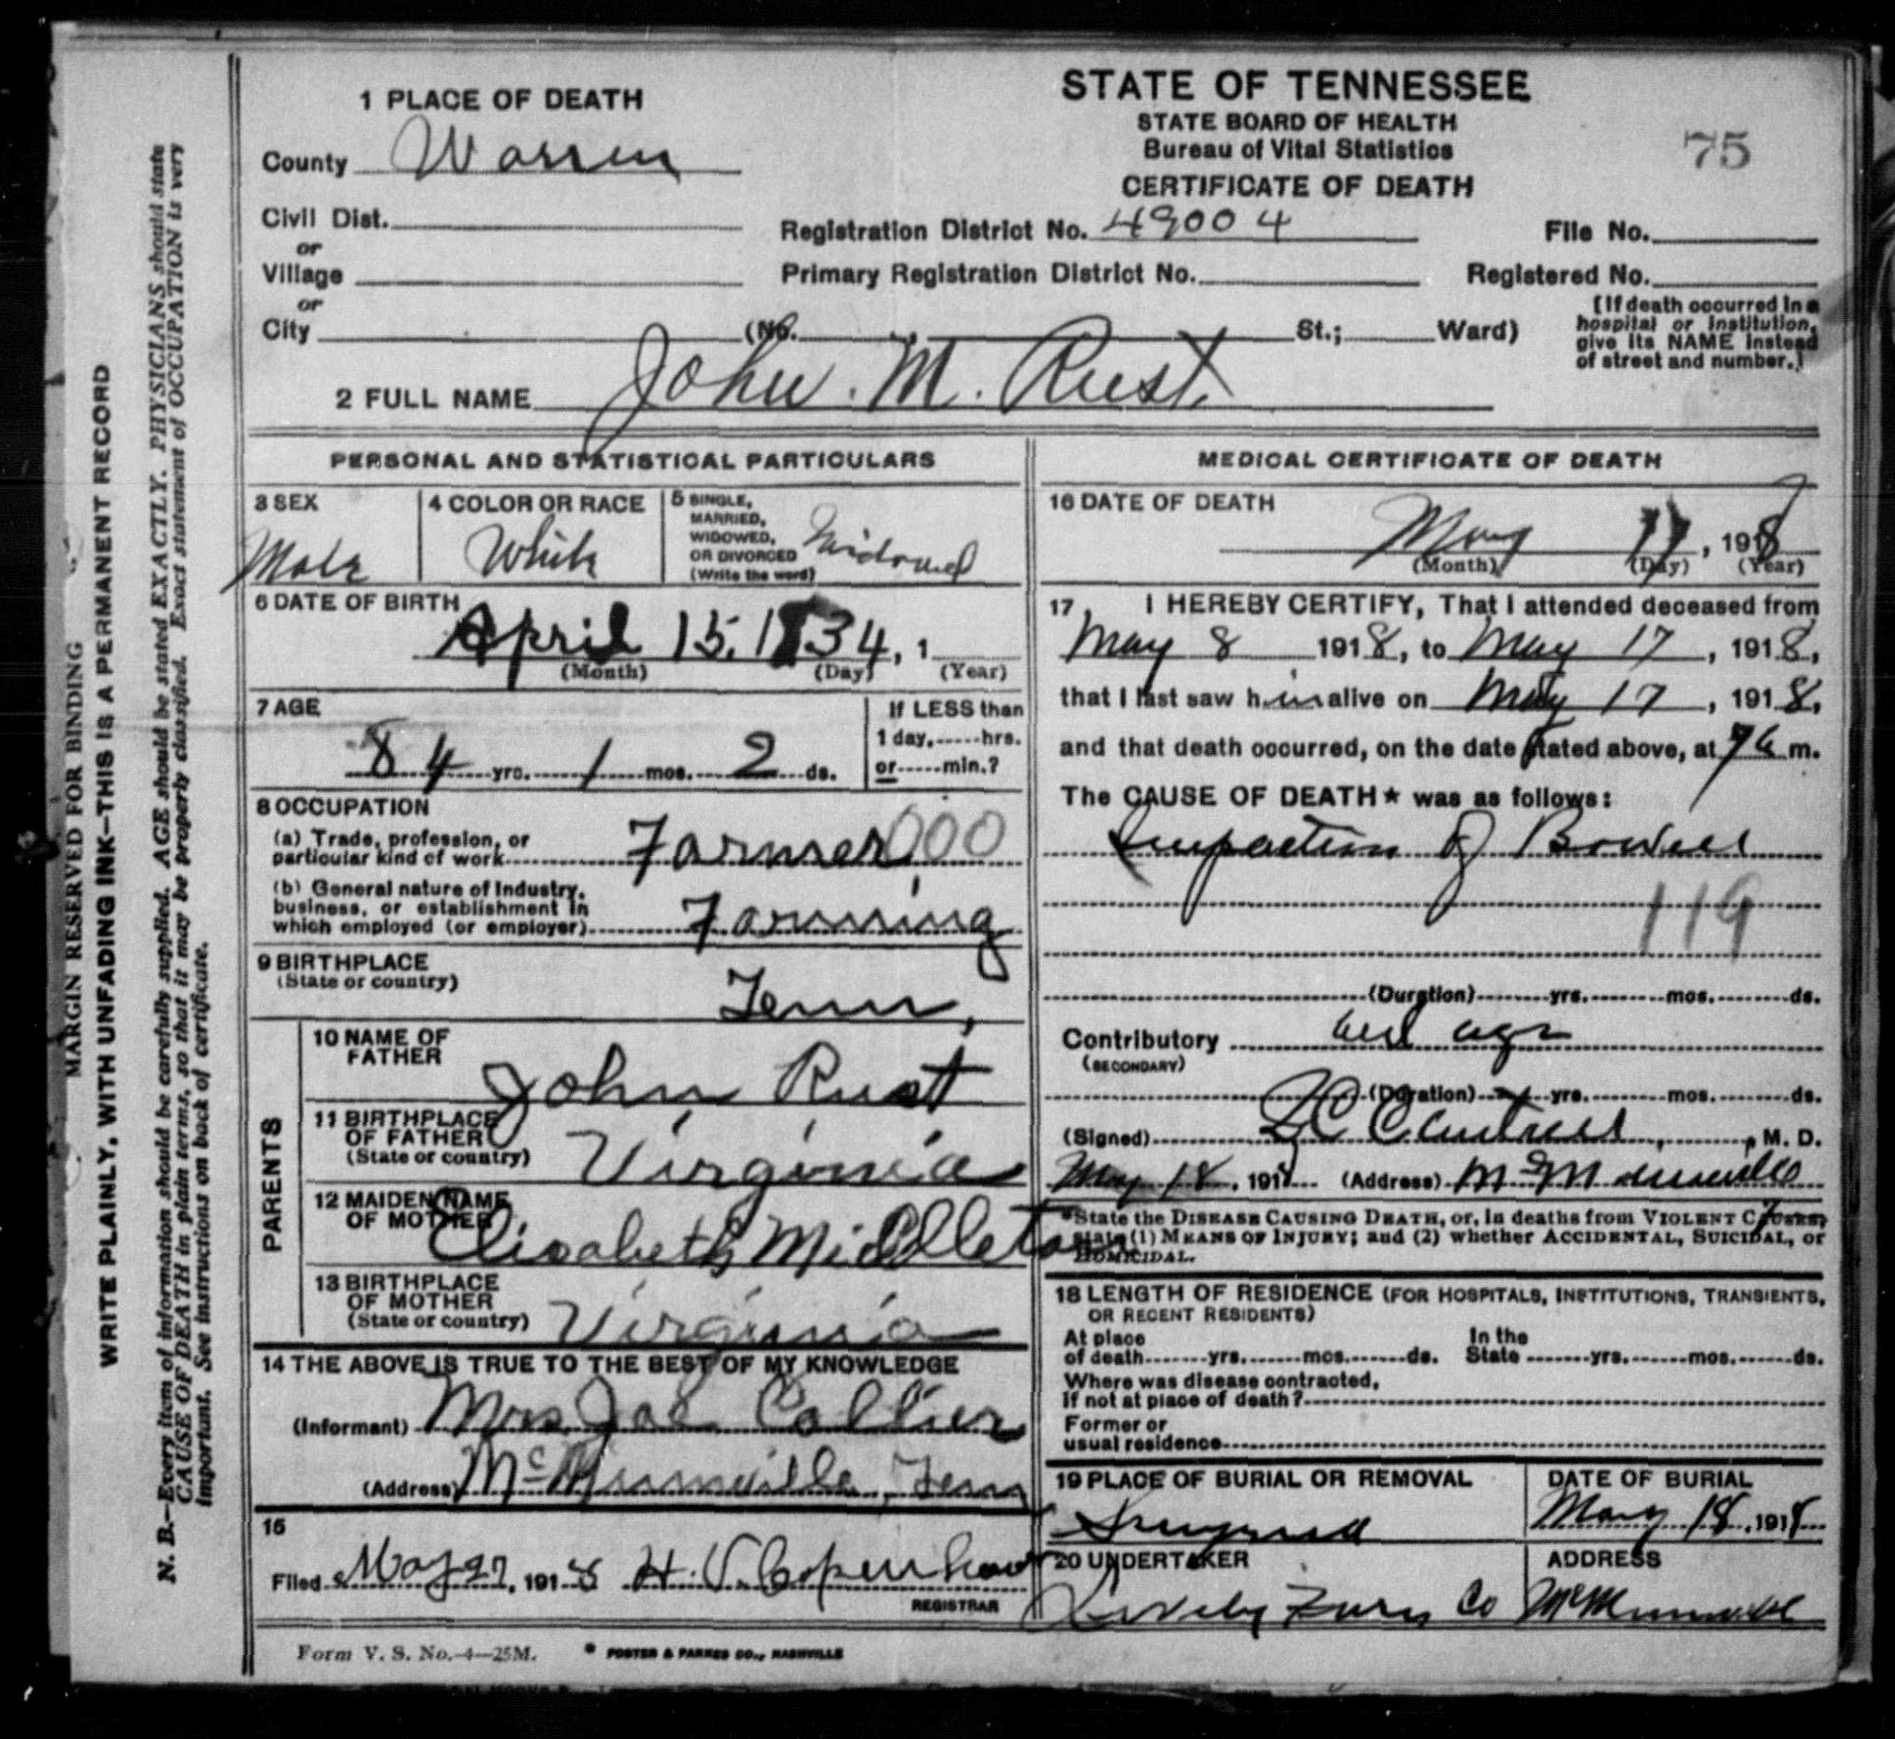 1 PLACE OF DEATH
County Warren
Civil Dist.
or
Village
or
City (No. St.; Ward)
STATE OF TENNESSEE
STATE BOARD OF HEALTH
Bureau of Vital Statistics
CERTIFICATE OF DEATH
75
Registration District No. 49004 File No.
Primary Registration District No. Registered No.
(If death occurred in a
hospital or institution,
give its NAME instead
of street and number.)
2 FULL NAME John. M. Rust.
PERSONAL AND STATISTICAL PARTICULARS
3 SEX
Male
4 COLOR OR RACE
White
5 SINGLE,
MARRIED,
WIDOWED,
OR DIVORCED
(Write the word)
Widowed
6 DATE OF BIRTH
April 15. 1834, 1
(Month) (Day) (Year)
7 AGE
84 yrs. 1 mos. 2 ds.
If LESS than
1 day, hrs.
or min.?
8 OCCUPATION
(a) Trade, profession, or
particular kind of work Farmer 000
(b) General nature of Industry,
business, or establishment in
which employed (or employer) Farming
9 BIRTHPLACE
(State or country)
Tenn,
PARENTS
10 NAME OF
FATHER
John Rust
11 BIRTHPLACE
OF FATHER
(State or country)
Virginia
12 MAIDEN NAME
OF MOTHER
Elisabeth Middleton
13 BIRTHPLACE
OF MOTHER
(State or country)
Virginia
14 THE ABOVE IS TRUE TO THE BEST OF MY KNOWLEDGE
(Informant) Mrs. Joe Collier
(Address) McMinnville, Tenn
15
Filed May 27, 1918 H. V. Copenhaver
REGISTRAR
MEDICAL CERTIFICATE OF DEATH
16 DATE OF DEATH
May 17, 1918
(Month) (Day) (Year)
17 I HEREBY CERTIFY, That I attended deceased from
May 8 1918, to May 17, 1918,
that I last saw him alive on May 17, 1918,
and that death occurred, on the date stated above, at 7 a m.
The CAUSE OF DEATH★ was as follows:
Impaction of Bowell
119
(Duration) yrs. mos. ds.
Contributory old age
(SECONDARY)
(Duration) yrs. mos. ds.
(Signed) Cantrell, M. D.
May 18, 1918 (Address) McMinnville
*State the DISEASE CAUSING DEATH, or, in deaths from VIOLENT CAUSES,
state (1) MEANS OF INJURY; and (2) whether ACCIDENTAL, SUICIDAL, or
HOMICIDAL.
18 LENGTH OF RESIDENCE (FOR HOSPITALS, INSTITUTIONS, TRANSIENTS,
OR RECENT RESIDENTS)
At place In the
of death yrs. mos. ds. State yrs. mos. ds.
Where was disease contracted,
If not at place of death?
Former or
usual residence
19 PLACE OF BURIAL OR REMOVAL
DATE OF BURIAL
May 18, 1918
20 UNDERTAKER
Furn Co
ADDRESS
McMinnville
Form V. S. No.-4—25M.
FOSTER & PARKES CO., NASHVILLE
MARGIN RESERVED FOR BINDING
WRITE PLAINLY, WITH UNFADING INK—THIS IS A PERMANENT RECORD
N. B.—Every item of information should be carefully supplied. AGE should be stated EXACTLY. PHYSICIANS should state
CAUSE OF DEATH in plain terms, so that it may be properly classified. Exact statement of OCCUPATION is very
important. See instructions on back of certificate.